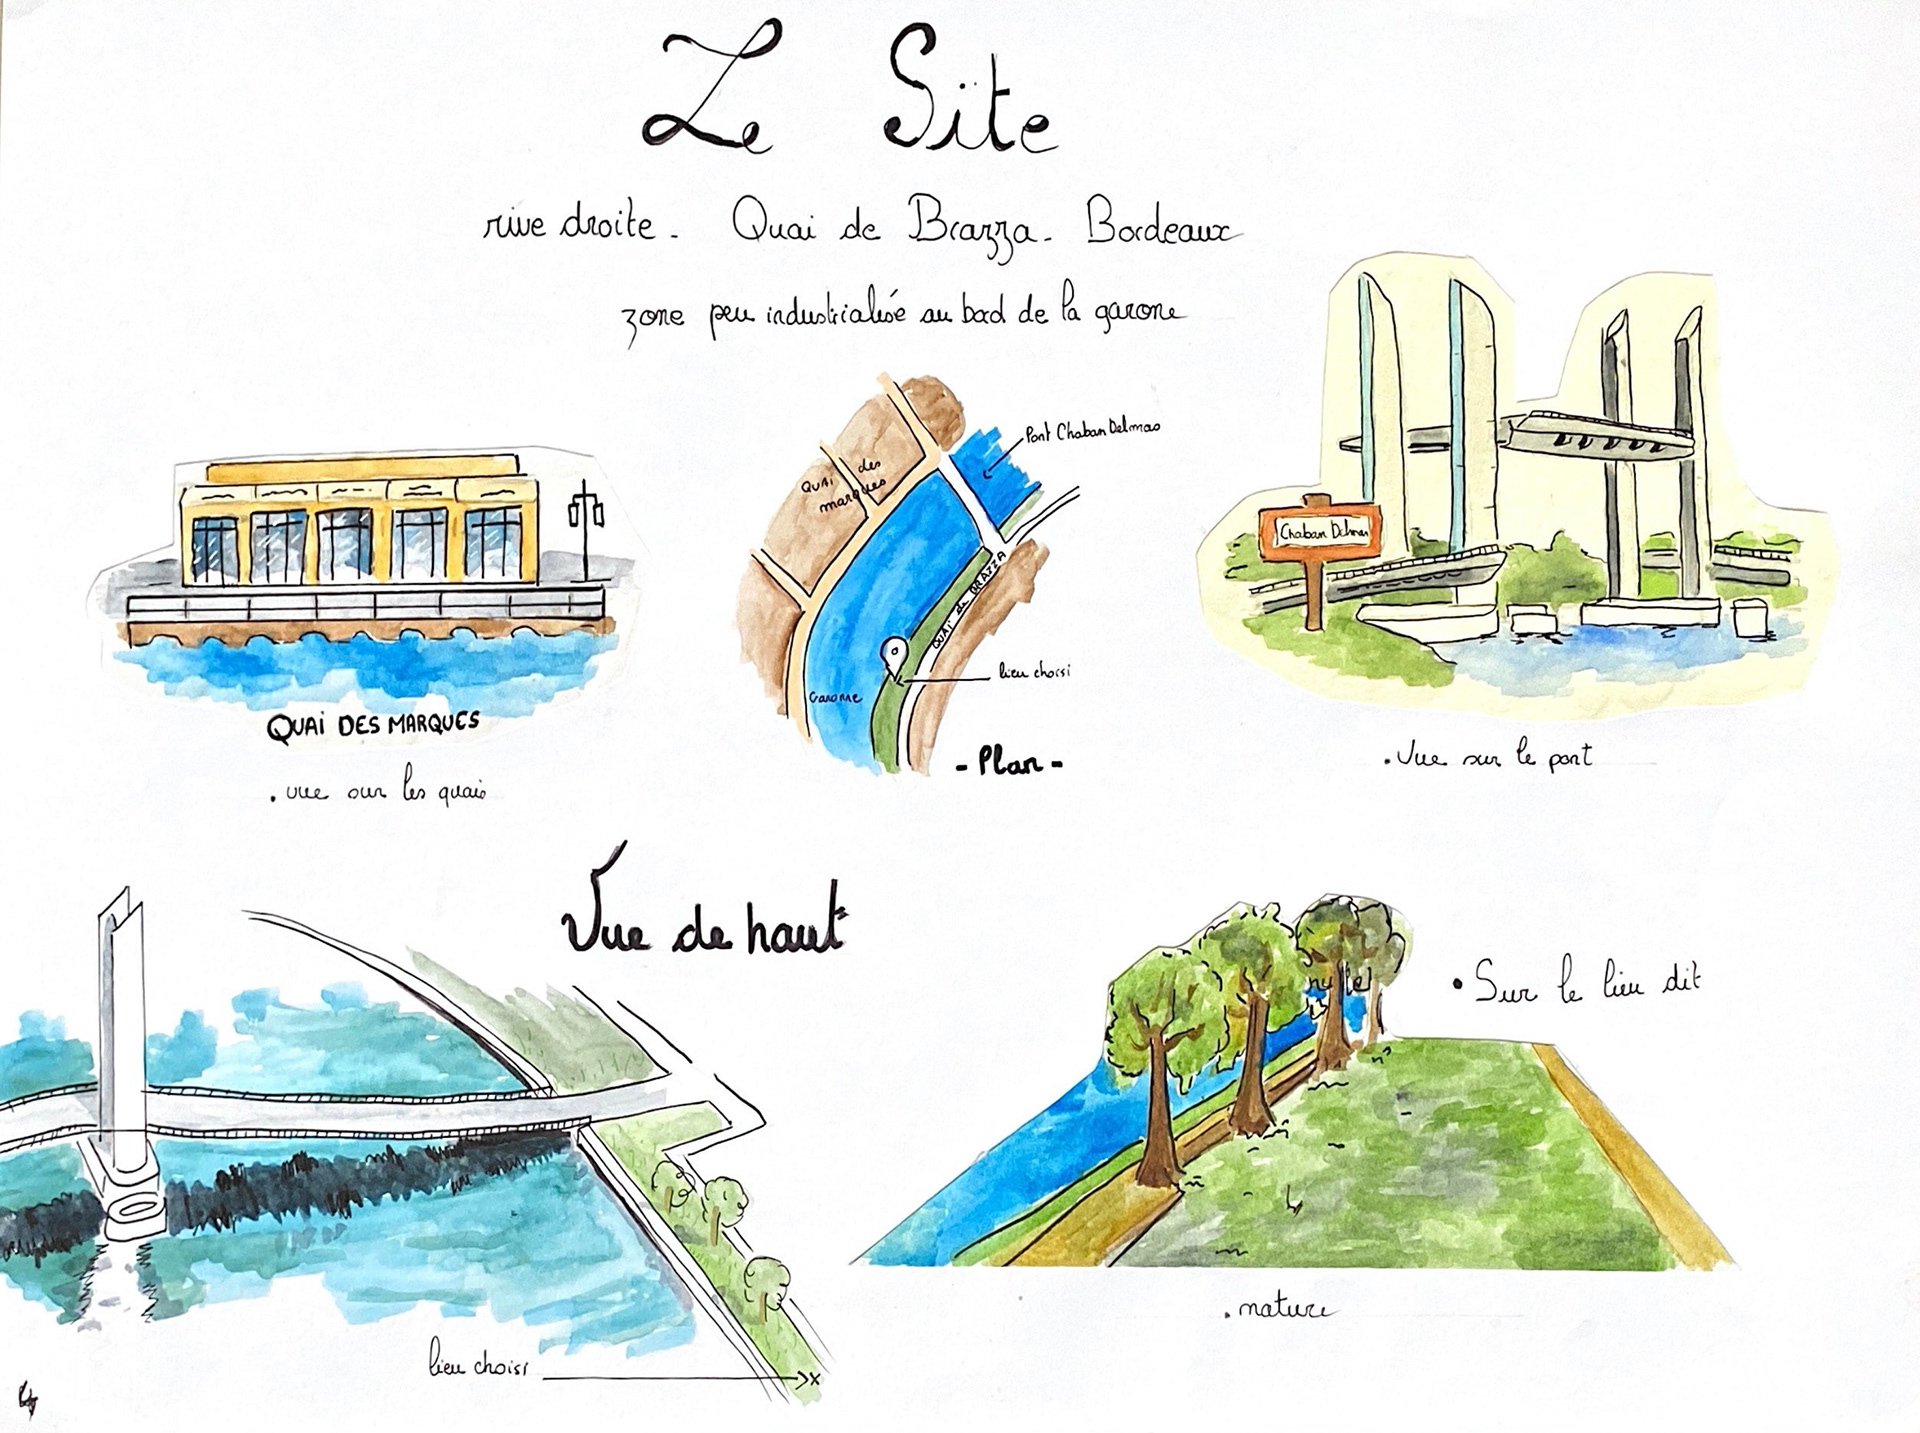 Le Site
rive droite - Quai de Brazza - Bordeaux
zone peu industrialisé au bord de la garone
Pont Chaban Delmas
QUAI des
marques
Chaban Delmas
QUAI de BRAZZA
lieu choisi
Garonne
- Plan -
QUAI DES MARQUES
. vue sur les quais
. Vue sur le pont
Vue de haut
• Sur le lieu dit
. nature
lieu choisi
x
4